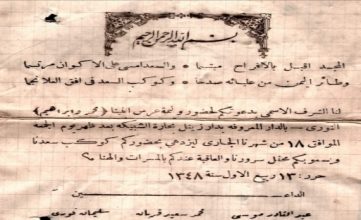 بسم الله الرحمن الرحيم
المجد اقبل بالافراح مبتسما والسعد امسى على الاكوان مرتسما
وطائر اليمن من عليائه صدحا وكوكب السعد فى افق العلا نجما
لنا الشرف الاسمى بدعوتكم لحضور وليمة عرس ابننا (محمد
النورى - بالدار المعروفة بدارزينل بحارة الشبيكه بعد ظهر يوم الجمعة
الموافق ١٨ من شهرنا الجارى ليزدهى بحضوركم كوكب سعدنا
وبسموبكم محفل سرورنا والعاقبة عندكم بالمسرات والهنا
حرر: ١٣ ربيع الاول سنة ١٣٤٨
الداعـــــين
عبد القادر محمد سعيد قربان سليمان نورى